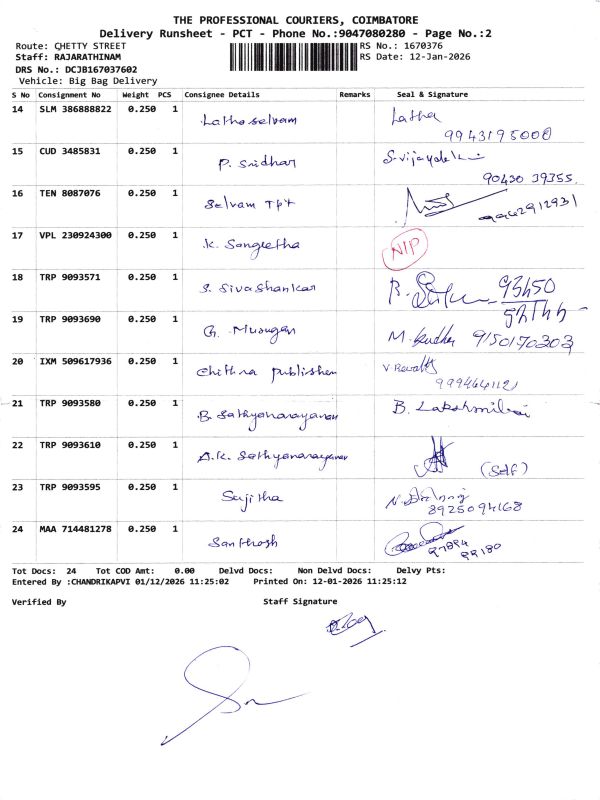 THE PROFESSIONAL COURIERS, COIMBATORE
Delivery Runsheet - PCT - Phone No.:9047080280 - Page No.:2
Route: CHETTY STREET RS No.: 1670376
Staff: RAJARATHINAM RS Date: 12-Jan-2026
DRS No.: DCJB167037602
Vehicle: Big Bag Delivery
S No Consignment No Weight PCS Consignee Details Remarks Seal & Signature
14 SLM 386888822 0.250 1 Lathaselvam Latha
9943195000
15 CUD 3485831 0.250 1 P. Sridhar
90430 39355
16 TEN 8087076 0.250 1 Selvam Tpt
9962912931
17 VPL 230924300 0.250 1 K. Sangeetha NIP
18 TRP 9093571 0.250 1 S. Sivashankar
19 TRP 9093690 0.250 1 G. Murugan M. 9150170303
20 IXM 509617936 0.250 1 Chithra publisher V Revathy
21 TRP 9093580 0.250 1 B. Sathyanarayanan B. Lakshmibai
22 TRP 9093610 0.250 1 A.K. Sathyanarayanan (Self)
23 TRP 9093595 0.250 1 Sujitha
8925094168
24 MAA 714481278 0.250 1 Santhosh
Tot Docs: 24 Tot COD Amt: 0.00 Delvd Docs: Non Delvd Docs: Delvy Pts:
Entered By :CHANDRIKAPVI 01/12/2026 11:25:02 Printed On: 12-01-2026 11:25:12
Verified By Staff Signature